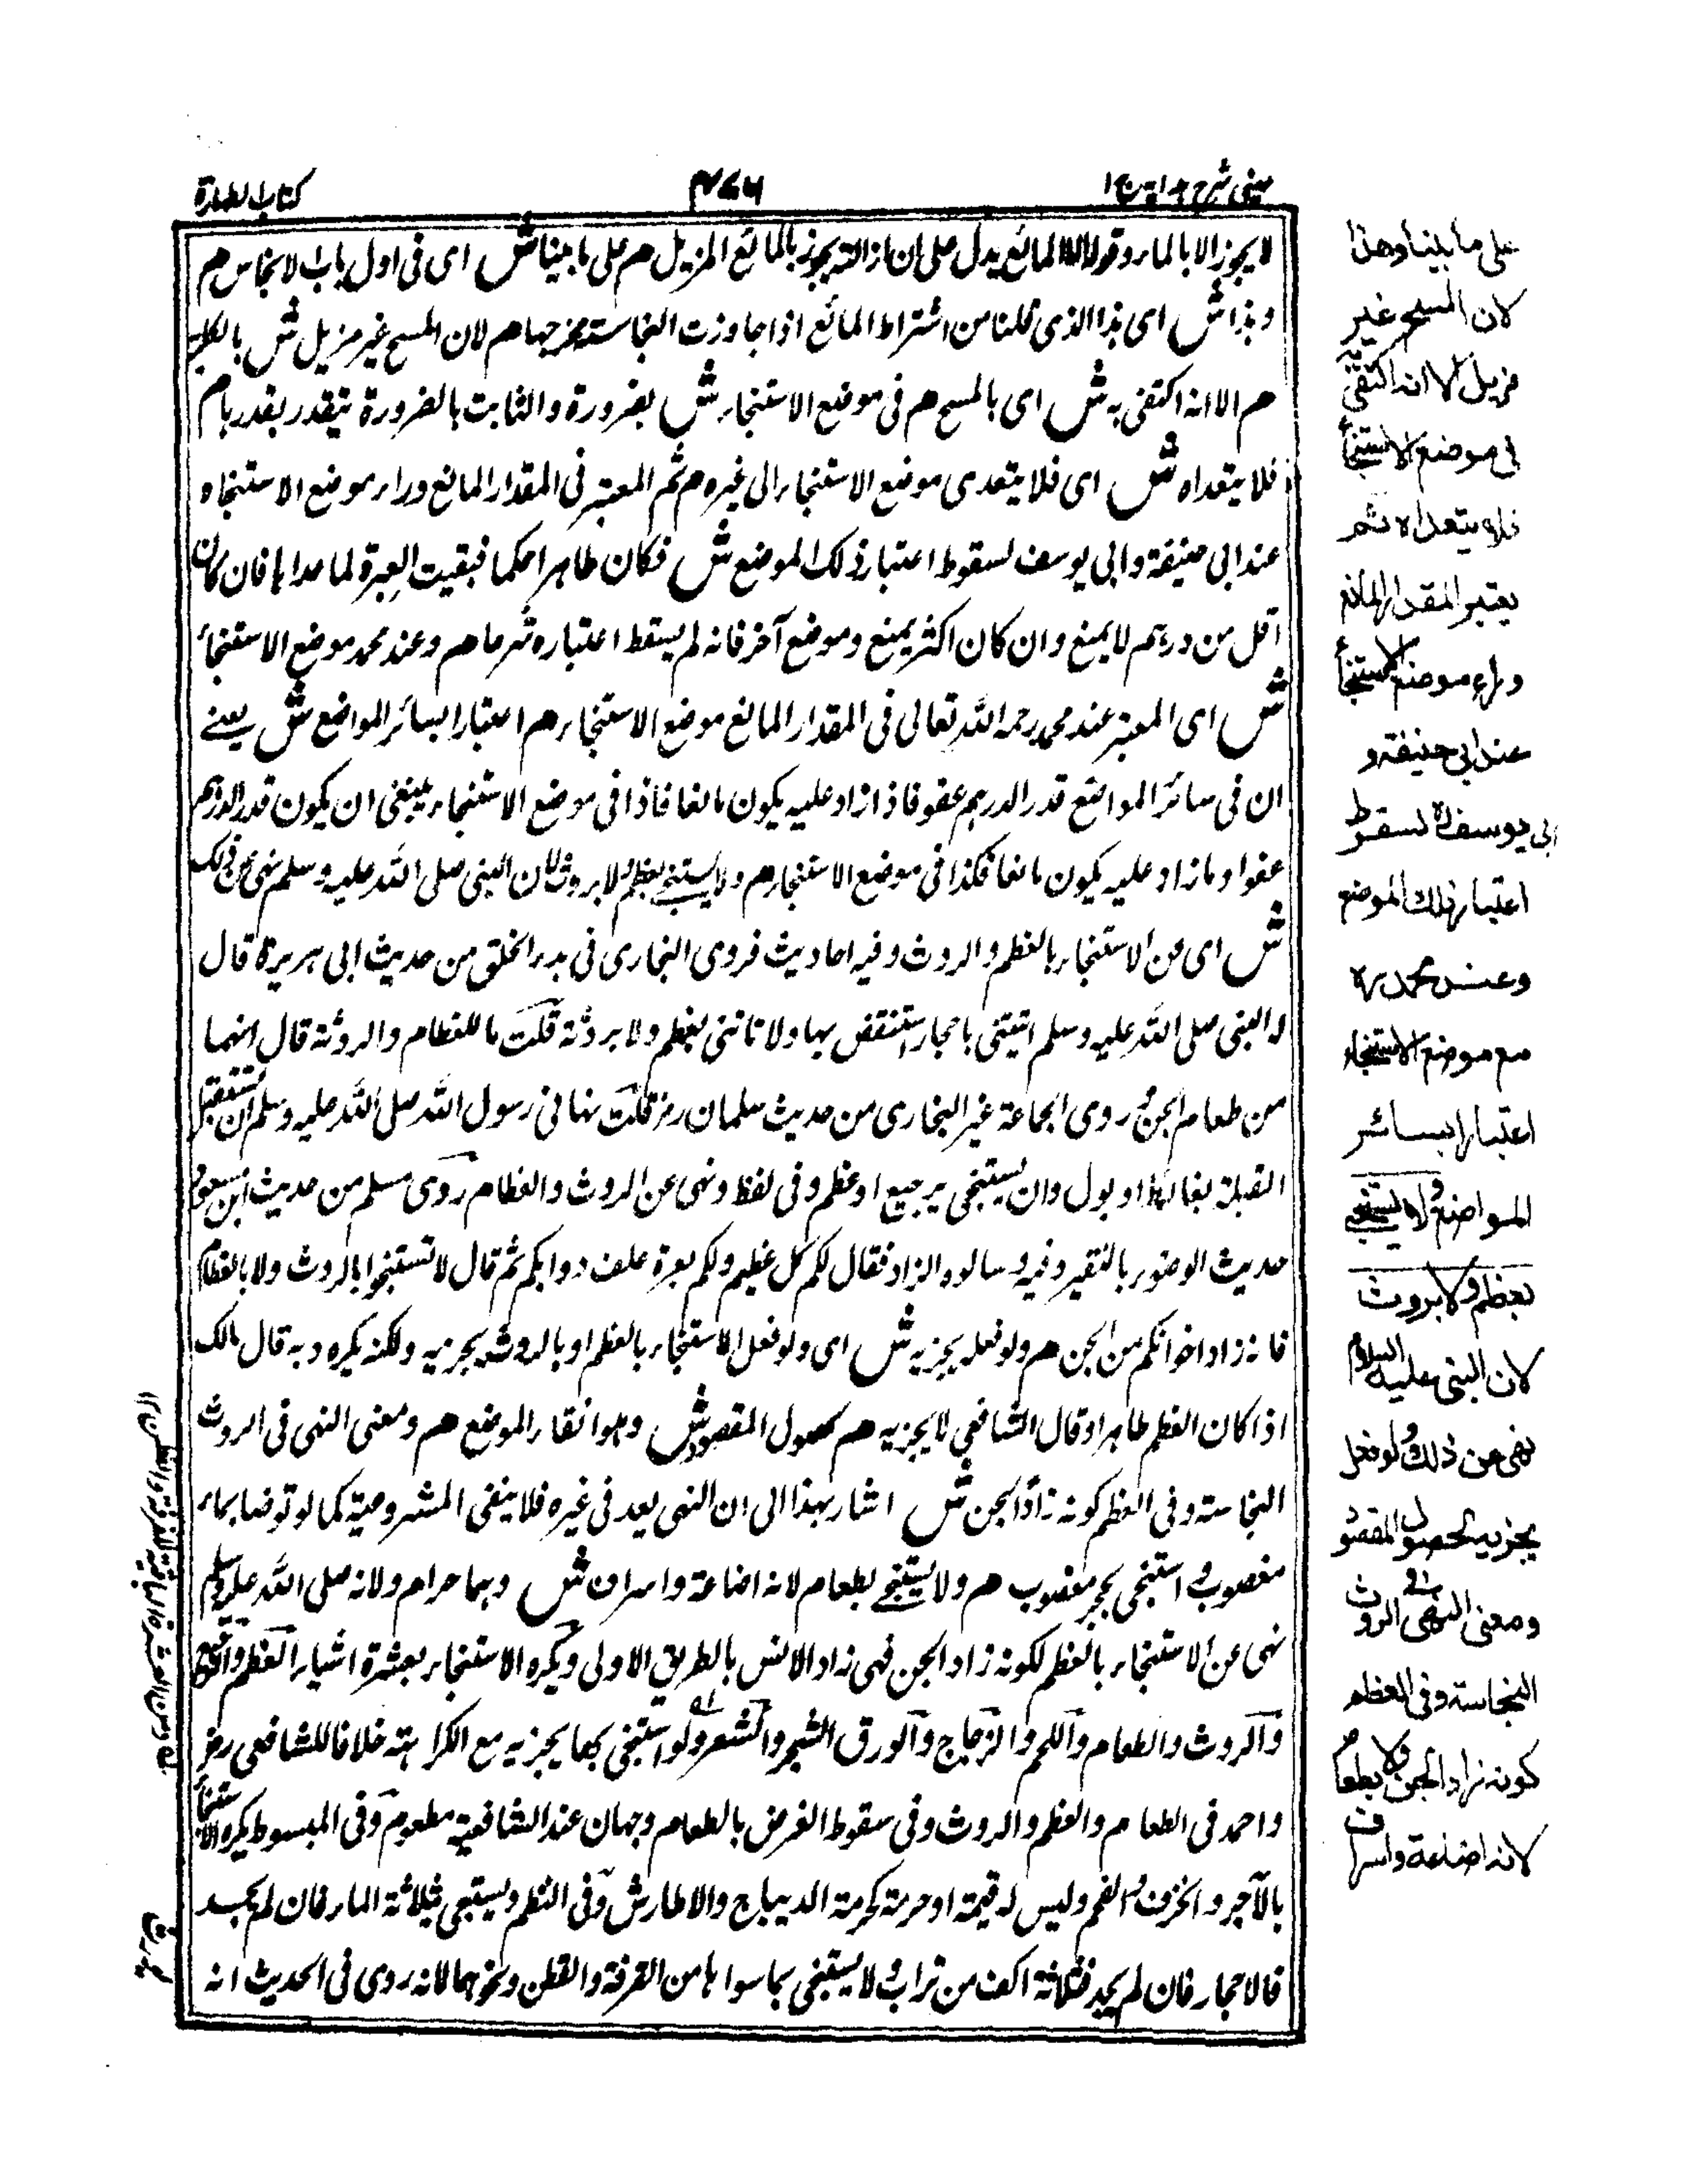 عینی شرح ہدایہ ج ۱
۴۷۶
کتاب الطہارة
لا یجوز الا بالماء وقولہ الا المائع یدل علی ان ازالتہ یجوز بالمائع المزیل هم علی ما بینا ش ای فی اول باب الانجاس هم
وہذا ش ای ہذا الذی قلنا من اشتراط المائع اذا جاوزت النجاستہ مخرجہا هم لان المسح غیر مزیل ش بالکلیۃ
هم الا انہ اکتفی بہ ش ای بالمسح هم فی موضع الاستنجاء ش بضرورة والثابت بالضرورة یتقدر بقدرہا هم
فلا یتعداہ ش ای فلا یتعدی موضع الاستنجاء الی غیرہ هم ثم المعتبر فی المقدار المانع وراء موضع الاستنجاء
عند ابی حنیفۃ وابی یوسف لسقوط اعتبار ذلک الموضع ش فکان طاہرا حکما فبقیت العبرة لما عداہا فان کان
اقل من درہم لا یمنع وان کان اکثر یمنع وموضع آخر فانہ لم یسقط اعتبارہ شرعا هم وعند محمد موضع الاستنجاء
ش ای المعتبر عند محمد رحمہ اللہ تعالی فی المقدار المانع موضع الاستنجاء هم اعتبارا بسائر المواضع ش یعنے
ان فی سائر المواضع قدر الدرہم عفو فاذا زاد علیہ یکون مانعا فاذا فی موضع الاستنجاء ینبغی ان یکون قدر الدرہم
عفوا وما زاد علیہ یکون مانعا فکذا فی موضع الاستنجاء هم ولا یستنجے بعظم ولا بروث لان النبی صلی اللہ علیہ وسلم نہی عن ذلک
ش ای عن الاستنجاء بالعظم والروث وفیہ احادیث فروی البخاری فی بدء الخلق من حدیث ابی ہریرة قال
لہ النبی صلی اللہ علیہ وسلم ائتنی باحجار استنقض بہا ولا تاتنی بعظم ولا بروثۃ قلت ما للعظام والروثۃ قال انہما
من طعام الجن وروی الجماعۃ غیر البخاری من حدیث سلمان رض قلت نہانی رسول اللہ صلی اللہ علیہ وسلم ان نستقبل
القبلۃ بغائط او بول وان یستنجی برجیع او عظم وفی لفظ ونہی عن الروث والعظام روی مسلم من حدیث ابن مسعود
حدیث الوضوء بالنقیر وفیہ وسالوہ الزاد فقال لکم کل عظیم ولکم بعرة علف دوابکم ثم قال لا تستنجوا بالروث ولا بالعظام
فانہ زاد اخوانکم من الجن هم ولو فعلہ یجزیہ ش ای ولو فعل الاستنجاء بالعظم او بالروث یجزیہ ولکنہ یکرہ وبہ قال مالک
اذا کان العظم طاہرا وقال الشافعی لا یجزیہ هم لحصول المقصود ش وہو انقاء الموضع هم ومعنی النہی فی الروث
النجاستہ وفی العظم کونہ زاد الجن ش اشار بہذا الی ان النہی یعد فی غیرہ فلا ینفی المشروعیۃ کما لو توضا بماء
مغصوب او استنجی بحجر مغصوب هم ولا یستنجے بطعام لانہ اضاعۃ واسراف ش وہما حرام ولانہ صلی اللہ علیہ وسلم
نہی عن الاستنجاء بالعظم لکونہ زاد الجن فہی زاد الانس بالطریق الاولی ویکرہ الاستنجاء بعشرة اشیاء العظم
والروث والطعام واللحم والزجاج والورق الشجر والشعر ولو استنجی بہا یجزیہ مع الکراہتہ خلافا للشافعی رض
واحمد فی الطعام والعظم والروث وفی سقوط الفرض بالطعام وجہان عند الشافعیۃ مطعوم وفی المبسوط یکرہ الاستنجاء
بالآجر والخزف والفحم ولیس لہ قیمۃ او حرمۃ کحرمۃ الدیباج والاطارش وفی النظم ویستنجی بثلاثۃ الماء فان لم یجد
فالاحجار فان لم یجد فثلاثۃ اکف من تراب ولا یستنجی بما سواہا من الخرقۃ والقطن ونحوہما لانہ روی فی الحدیث انہ
علی ما بینا وهذا
لان المسح غیر
مزیل الا انه اکتفی به
فی موضع الاستنجأ
فلا یتعداہ ثم
یعتبر المقدار المانع
وراء موضع الاستنجأ
عند ابی حنیفة و
ابی یوسف رہ لسقوط
اعتبار ذلك الموضع
وعند محمد رہ
مع موضع الاستنجاء
اعتبارا بسائر
المواضع ولا یستنجے
بعظم ولا بروث
لان النبی علیه السلام
نهی عن ذلك ولو فعل
یجزیه لحصول المقصو
ومعنی النهی فی الروث
النجاسته وفی العظم
کونه زاد الجن ولا بطعام
لانه اضاعة واسراف